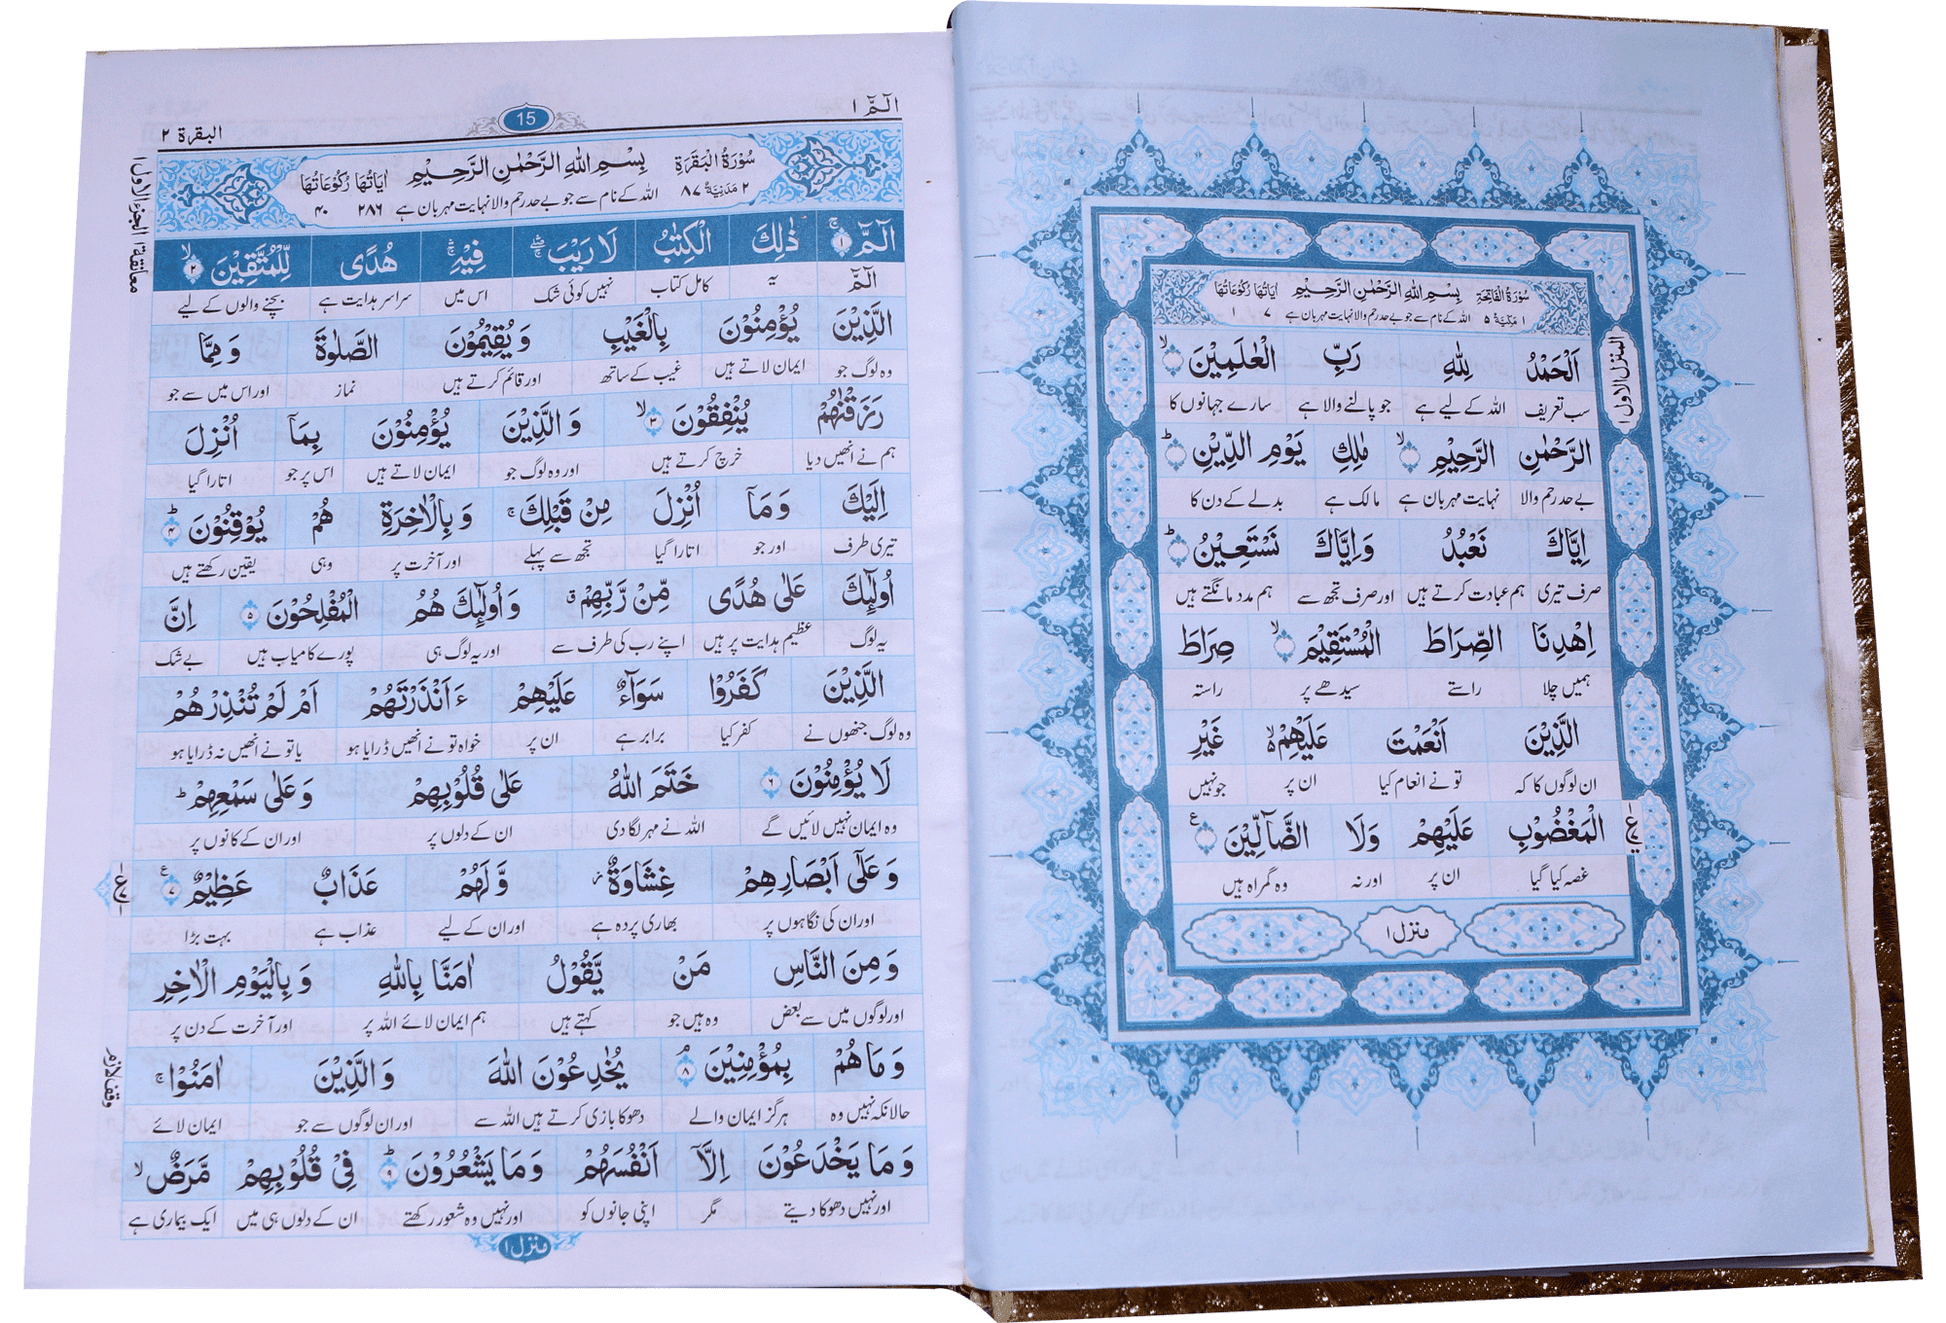 سُوْرَةُ الْفَاتِحَةِ بِسْمِ اللهِ الرَّحْمٰنِ الرَّحِيْمِ اٰيَاتُهَا رُكُوْعَاتُهَا
١ مَكِّيَّةٌ ٥ اللہ کے نام سے جو بے حد رحم والا نہایت مہربان ہے ٧ ١
اَلْحَمْدُ لِلّٰهِ رَبِّ الْعٰلَمِيْنَ
سب تعریف اللہ کے لیے ہے جو پالنے والا ہے سارے جہانوں کا
الرَّحْمٰنِ الرَّحِيْمِ مٰلِكِ يَوْمِ الدِّيْنِ
بے حد رحم والا نہایت مہربان ہے مالک ہے بدلے کے دن کا
اِيَّاكَ نَعْبُدُ وَاِيَّاكَ نَسْتَعِيْنُ
صرف تیری ہم عبادت کرتے ہیں اور صرف تجھ سے ہم مدد مانگتے ہیں
اِهْدِنَا الصِّرَاطَ الْمُسْتَقِيْمَ صِرَاطَ
ہمیں چلا راستے سیدھے پر راستہ
الَّذِيْنَ اَنْعَمْتَ عَلَيْهِمْ غَيْرِ
ان لوگوں کا کہ تو نے انعام کیا ان پر جو نہیں
الْمَغْضُوْبِ عَلَيْهِمْ وَلَا الضَّآلِّيْنَ
غصہ کیا گیا ان پر اور نہ وہ گمراہ ہیں
منزل ١
المنزل الاول ١
الٓمّٓ ١ 15 البقرة ٢
سُوْرَةُ الْبَقَرَةِ بِسْمِ اللهِ الرَّحْمٰنِ الرَّحِيْمِ اٰيَاتُهَا رُكُوْعَاتُهَا
٢ مَدَنِيَّةٌ ٨٧ اللہ کے نام سے جو بے حد رحم والا نہایت مہربان ہے ٢٨٦ ٤٠
الٓمّٓ ١ ذٰلِكَ الْكِتٰبُ لَا رَيْبَ فِيْهِ هُدًى لِّلْمُتَّقِيْنَ ٢
الٓمّٓ یہ کامل کتاب نہیں کوئی شک اس میں سراسر ہدایت ہے بچنے والوں کے لیے
الَّذِيْنَ يُؤْمِنُوْنَ بِالْغَيْبِ وَيُقِيْمُوْنَ الصَّلٰوةَ وَمِمَّا
وہ لوگ جو ایمان لاتے ہیں غیب کے ساتھ اور قائم کرتے ہیں نماز اور اس میں سے جو
رَزَقْنٰهُمْ يُنْفِقُوْنَ ٣ وَالَّذِيْنَ يُؤْمِنُوْنَ بِمَآ اُنْزِلَ
ہم نے انھیں دیا خرچ کرتے ہیں اور وہ لوگ جو ایمان لاتے ہیں اس پر جو اتارا گیا
اِلَيْكَ وَمَآ اُنْزِلَ مِنْ قَبْلِكَ وَبِالْاٰخِرَةِ هُمْ يُوْقِنُوْنَ ٤
تیری طرف اور جو اتارا گیا تجھ سے پہلے اور آخرت پر وہی یقین رکھتے ہیں
اُولٰٓئِكَ عَلٰى هُدًى مِّنْ رَّبِّهِمْ وَاُولٰٓئِكَ هُمُ الْمُفْلِحُوْنَ ٥ اِنَّ
یہ لوگ عظیم ہدایت پر ہیں اپنے رب کی طرف سے اور یہ لوگ ہی پورے کامیاب ہیں بے شک
الَّذِيْنَ كَفَرُوْا سَوَآءٌ عَلَيْهِمْ ءَاَنْذَرْتَهُمْ اَمْ لَمْ تُنْذِرْهُمْ
وہ لوگ جنھوں نے کفر کیا برابر ہے ان پر خواہ تو نے انھیں ڈرایا ہو یا تو نے انھیں نہ ڈرایا ہو
لَا يُؤْمِنُوْنَ ٦ خَتَمَ اللهُ عَلٰى قُلُوْبِهِمْ وَعَلٰى سَمْعِهِمْ
وہ ایمان نہیں لائیں گے اللہ نے مہر لگا دی ان کے دلوں پر اور ان کے کانوں پر
وَعَلٰٓى اَبْصَارِهِمْ غِشَاوَةٌ وَّلَهُمْ عَذَابٌ عَظِيْمٌ ٧
اور ان کی نگاہوں پر بھاری پردہ ہے اور ان کے لیے عذاب ہے بہت بڑا
وَمِنَ النَّاسِ مَنْ يَّقُوْلُ اٰمَنَّا بِاللهِ وَبِالْيَوْمِ الْاٰخِرِ
اور لوگوں میں سے بعض وہ ہیں جو کہتے ہیں ہم ایمان لائے اللہ پر اور آخرت کے دن پر
وَمَا هُمْ بِمُؤْمِنِيْنَ ٨ يُخٰدِعُوْنَ اللهَ وَالَّذِيْنَ اٰمَنُوْا
حالانکہ نہیں وہ ہرگز ایمان والے دھوکا بازی کرتے ہیں اللہ سے اور ان لوگوں سے جو ایمان لائے
وَمَا يَخْدَعُوْنَ اِلَّآ اَنْفُسَهُمْ وَمَا يَشْعُرُوْنَ ٩ فِيْ قُلُوْبِهِمْ مَّرَضٌ
اور نہیں دھوکا دیتے مگر اپنی جانوں کو اور نہیں وہ شعور رکھتے ان کے دلوں ہی میں ایک بیماری ہے
منزل ١
معانقة ١ الجزء الاول ١
وقف لازم